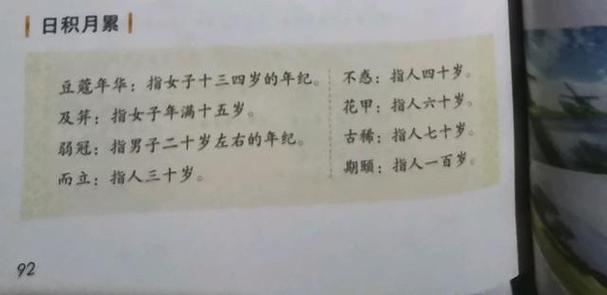 日积月累
豆蔻年华：指女子十三四岁的年纪。
及笄：指女子年满十五岁。
弱冠：指男子二十岁左右的年纪。
而立：指人三十岁。
不惑：指人四十岁。
花甲：指人六十岁。
古稀：指人七十岁。
期颐：指人一百岁。
92